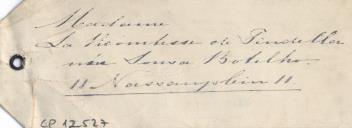 Madame
La Vicomtesse de Pindella
née Sousa Botelho.
11 Nassauplein 11
CP 12527